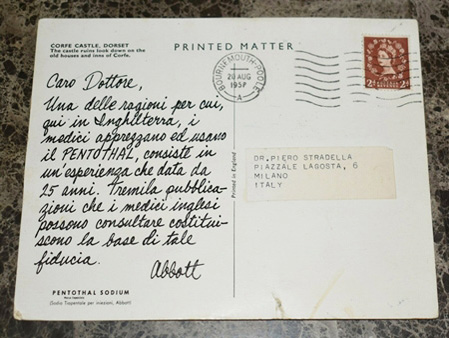 CORFE CASTLE, DORSET
The castle ruins look down on the
old houses and inns of Corfe.
PRINTED MATTER
BOURNEMOUTH-POOLE
20 AUG
1957
A
2d 2d
Caro Dottore,
Una delle ragioni per cui,
qui in Inghilterra, i
medici apprezzano ed usano
il PENTOTHAL, consiste in
un'esperienza che data da
25 anni. Tremila pubblica-
zioni che i medici inglesi
possono consultare costitui-
scono la base di tale
fiducia.
Abbott
PENTOTHAL SODIUM
(Sodio Tiopentale per iniezioni, Abbott)
Printed in England
DR. PIERO STRADELLA
PIAZZALE LAGOSTA, 6
MILANO
ITALY